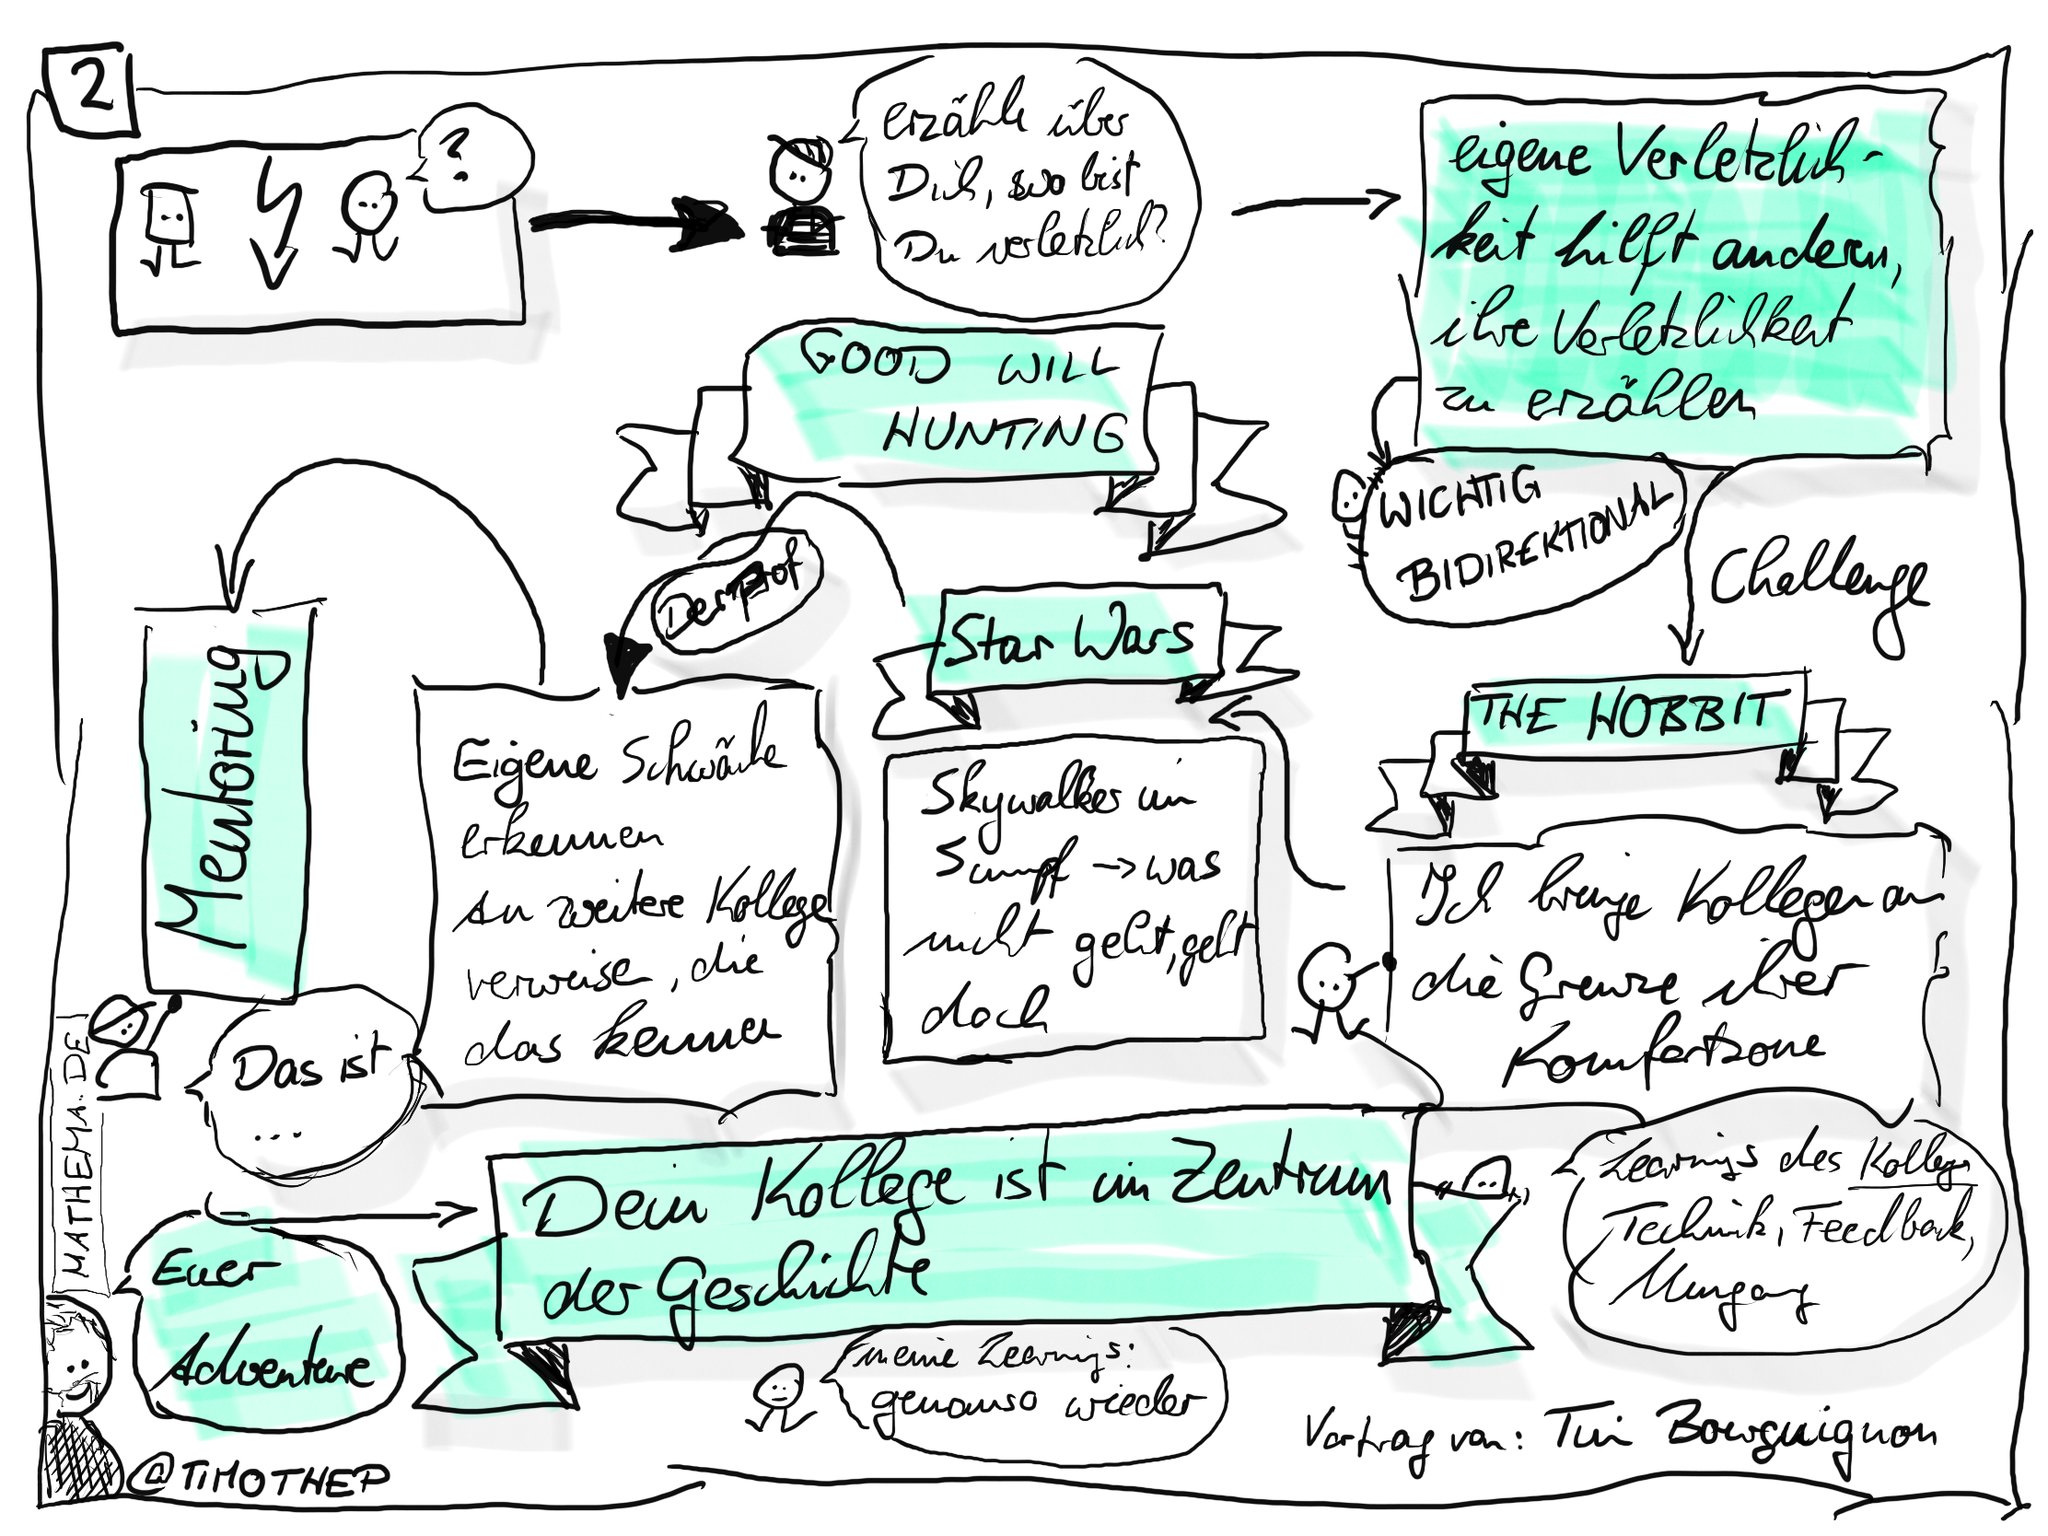 2
?
erzähle über
Dich, wo bist
Du verletzlich?
eigene Verletzlich-
keit hilft anderen,
ihre Verletzlichkeit
zu erzählen
GOOD WILL
HUNTING
WICHTIG
BIDIREKTIONAL
Challenge
Der Prof
Star Wars
THE HOBBIT
Mentoring
Eigene Schwäche
erkennen
An weitere Kollege
verweise, die
das kennen
Skywalker im
Sumpf -> was
nicht geht, geht
doch
Ich bringe Kollegen an
die Grenze ihrer
Komfortzone
Das ist
...
MATHEMA.DE
Dein Kollege ist im Zentrum
der Geschichte
Learnings des Kollege
Technik, Feedback,
Umgang
Euer
Adventure
meine Learnings:
genauso wieder
Vortrag von: Tim Bourguignon
@TIMOTHEP